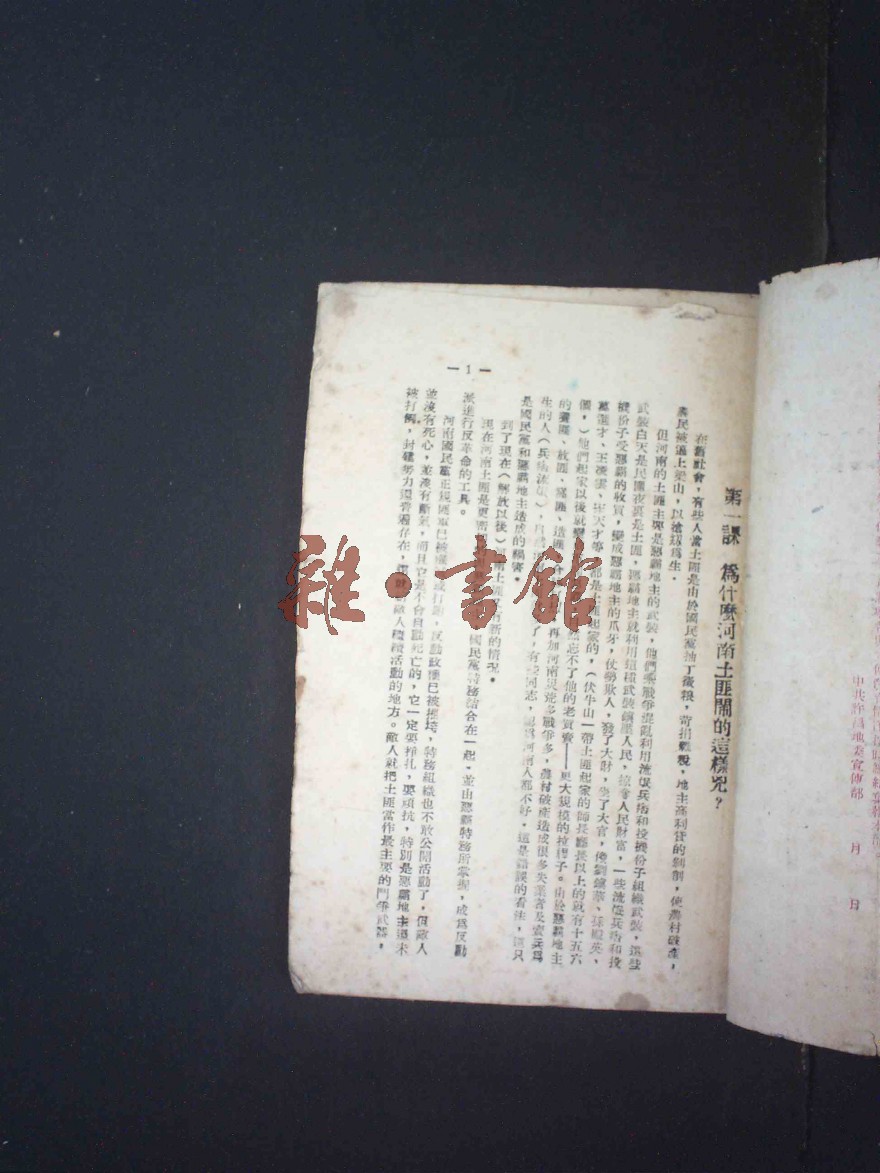 第一課 為什麼河南土匪鬧的這樣兇？
在舊社會，有些人當土匪是由於國民黨抽丁徵糧，苛捐雜稅，地主高利貸的剝削，使農村破產，
農民被逼上梁山，以搶掠為生。
但河南的土匪主要是惡霸地主的武裝，他們乘戰爭混亂利用流氓兵痞和投機份子組織武裝，這些
武裝白天是民團夜裏是土匪，惡霸地主就利用這種武裝鎮壓人民，掠奪人民財富，一些流氓兵痞和投
機份子受惡霸的收買，變成惡霸地主的爪牙，仗勢欺人，發了大財，坐了大官，像劉鎮華、孫殿英、
萬選才、王凌雲、 天才等 都是土匪起家的，（伏牛山一帶土匪起家的師長廳長以上的就有十五六
個，）他們起家以後就 忘不了他的老買賣——更大規模的拉桿子。由於惡霸地主
的養匪、放匪、窩匪、造匪 再加河南災荒多戰爭多，農村破產造成很多失業者及賣兵為
生的人（兵痞流氓）， 了，有些同志，認為河南人都不好，這是錯誤的看法，這只
是國民黨和惡霸地主造成的禍害。
到了現在（解放以後） 南土匪又有新的情況。
現在河南土匪是更密 國民黨特務結合在一起，並由惡霸特務所掌握，成為反動
派進行反革命的工具。
河南國民黨正規匪軍已被殲滅或打跑，反動政權已被摧垮，特務組織也不敢公開活動了，但敵人
並沒有死心，並沒有斷氣，而且它是不會自動死亡的，它一定要掙扎，要頑抗，特別是惡霸地主還未
被打倒，封建勢力還普遍存在， 就 敵人積極活動的地方。敵人就把土匪當作最主要的鬥爭武器，
— 1 —
中共許昌地委宣傳部 月 日
雜·書館